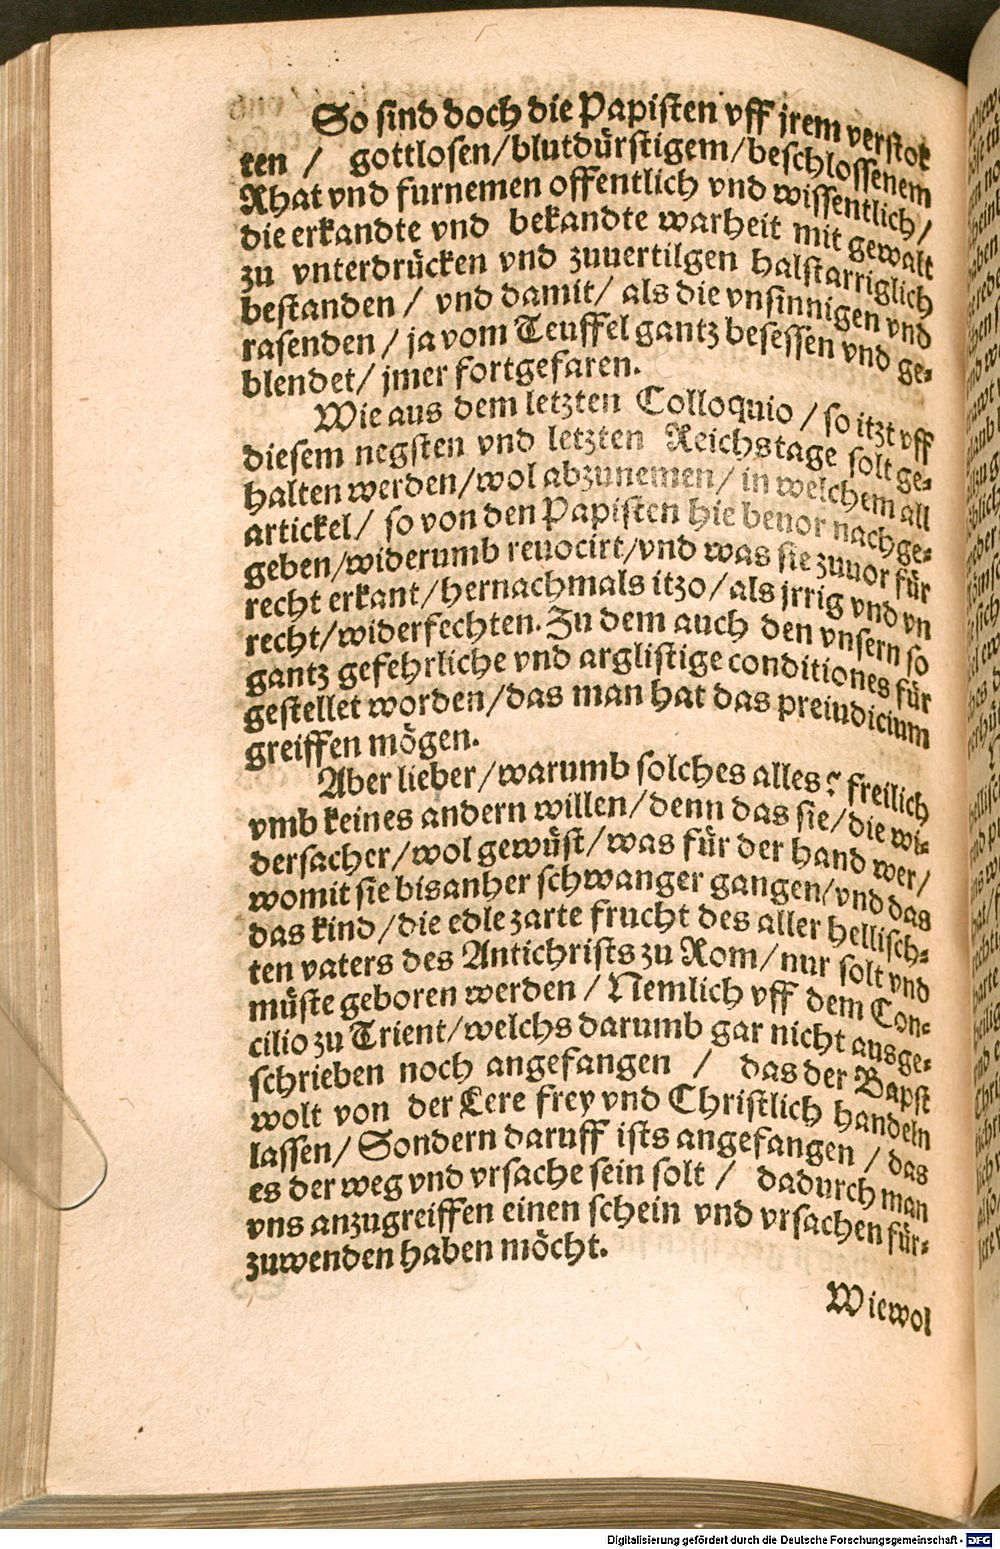 So sind doch die Papisten vff jrem verstok
ten / gottlosen/blutdürstigem/beschlossenem
Rhat vnd furnemen offentlich vnd wissentlich/
die erkandte vnd bekandte warheit mit gewalt
zu vnterdrücken vnd zuuertilgen halstarriglich
bestanden / vnd damit/ als die vnsinnigen vnd
rasenden / ja vom Teuffel gantz besessen vnd ge-
blendet/ jmer fortgefaren.
Wie aus dem letzten Colloquio / so itzt vff
diesem negsten vnd letzten Reichstage solt ge-
halten werden/wol abzunemen/ in welchem all
artickel/ so von den Papisten hie beuor nachge-
geben/widerumb reuocirt/vnd was sie zuuor für
recht erkant/hernachmals itzo/als jrrig vnd vn
recht/widerfechten. Zu dem auch den vnsern so
gantz gefehrliche vnd arglistige conditiones für
gestellet worden/das man hat das preiudicium
greiffen mögen.
Aber lieber/warumb solches alles? freilich
vmb keines andern willen/denn das sie/die wi-
dersacher/wol gewüst/was für der hand wer/
womit sie bisanher schwanger gangen/vnd das
das kind/die edle zarte frucht des aller hellisch-
ten vaters des Antichrists zu Rom/nur solt vnd
müste geboren werden / Nemlich vff dem Con-
cilio zu Trient/welchs darumb gar nicht ausge-
schrieben noch angefangen / das der Bapst
wolt von der Lere frey vnd Christlich handeln
lassen/ Sondern daruff ists angefangen / das
es der weg vnd vrsache sein solt / dadurch man
vns anzugreiffen einen schein vnd vrsachen für-
zuwenden haben möcht.
Wiewol
Digitalisierung gefördert durch die Deutsche Forschungsgemeinschaft - DFG